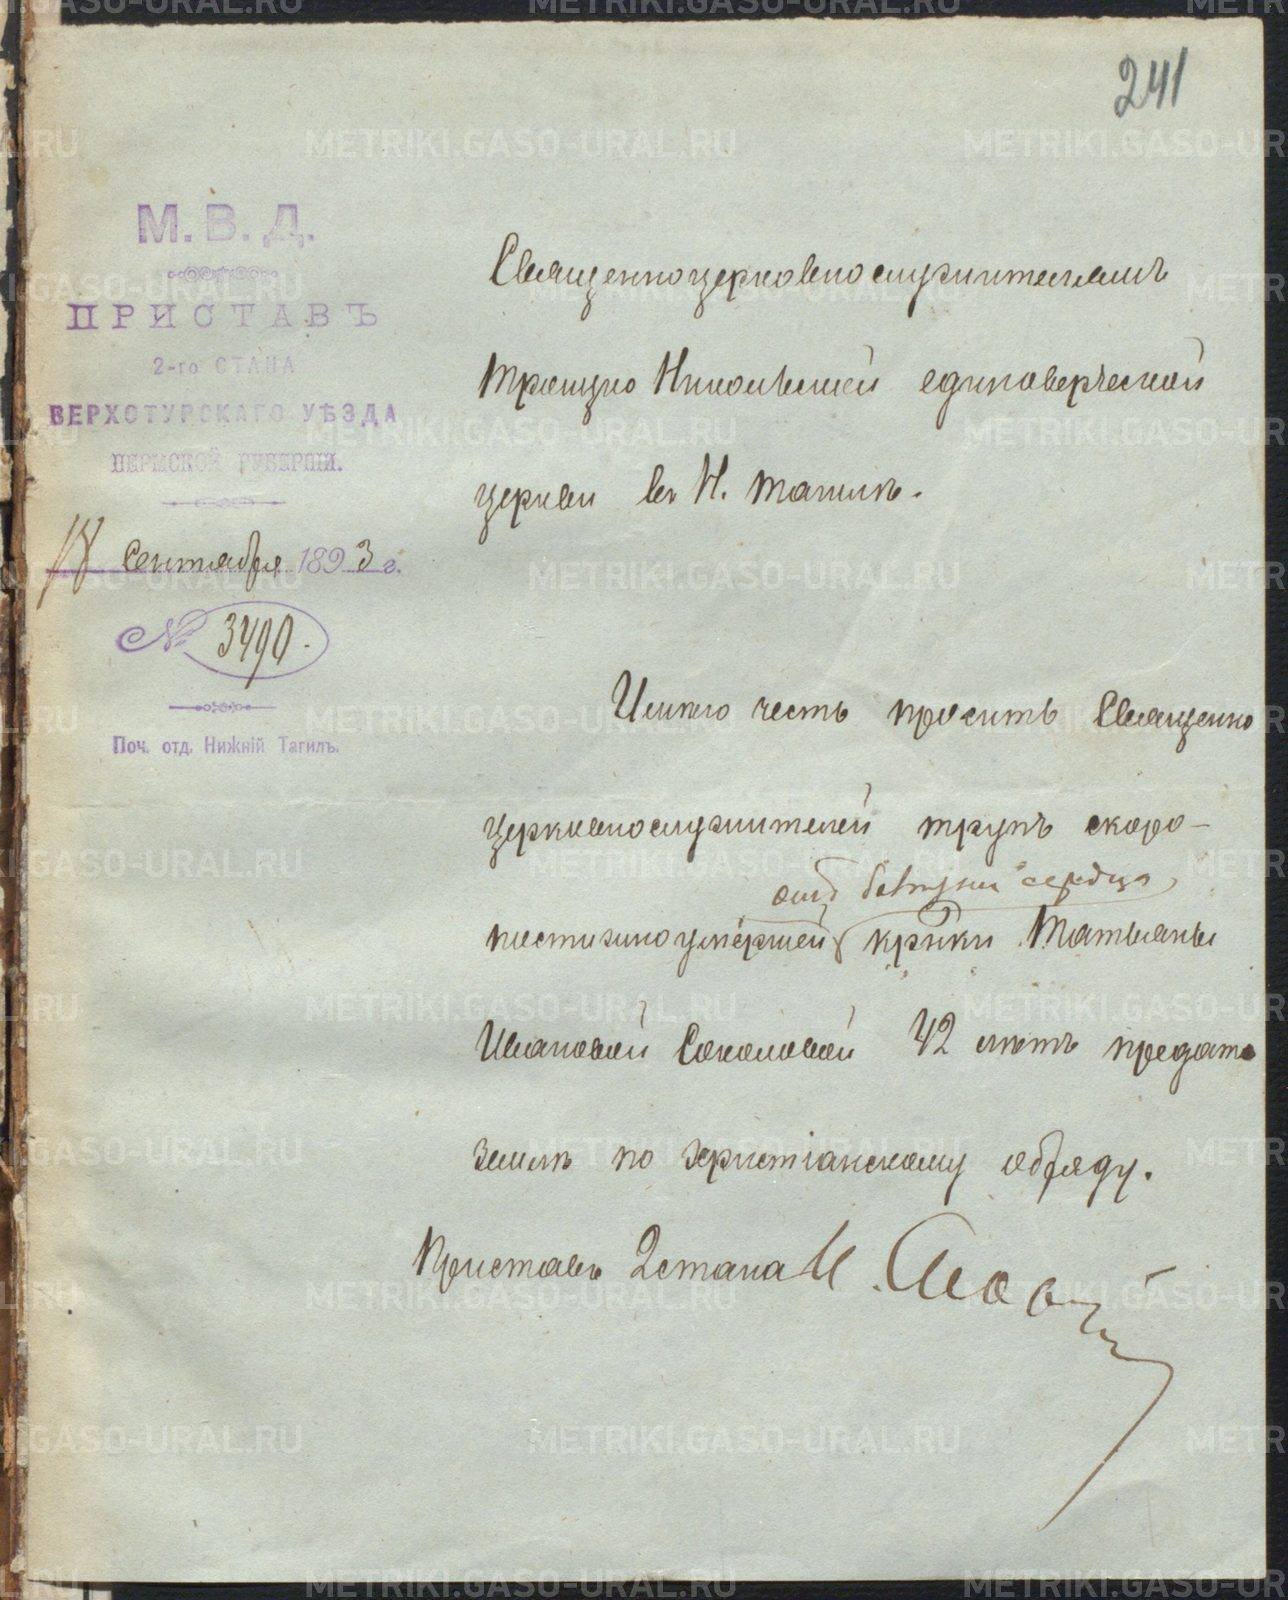 241
М. В. Д.
ПРИСТАВЪ
2-го СТАНА
ВЕРХОТУРСКАГО УѢЗДА
ПЕРМСКОЙ ГУБЕРНІИ.
18 Сентября 1893 г.
№ 3490.
Поч. отд. Нижній Тагилъ.
Священноцерковнослужителямъ
Троицко Никольской единоверческой
церкви въ Н. Тагилѣ.
Имѣю честь просить Священно
церковнослужителей трупъ скоро-
отъ болѣзни сердца
постижно умершей кр'нки Татьяны
Ивановой Соколовой 42 лѣтъ предать
землѣ по христіанскому обряду.
Приставъ 2 стана И.
METRIKI.GASO-URAL.RU